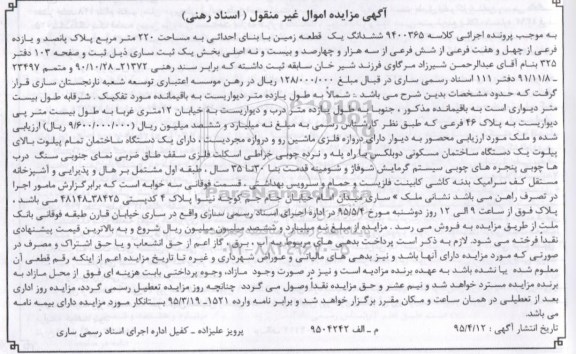 آگهی مزایده اموال غیر منقول ( اسناد رهنی)
به موجب پرونده اجرائی کلاسه ۹۴۰۰۳۶۵ ششدانگ یک قطعه زمین با بنای احداثی به مساحت ۲۲۰ متر مربع پلاک پانصد و یازده
فرعی از چهل و هفت فرعی از شش فرعی از سه هزار و چهارصد و بیست و نه اصلی بخش یک ثبت ساری ذیل ثبت و صفحه ۱۰۳ دفتر
۳۲۵ بنام آقای عبدالرحمن شیرزاد مرگاوی فرزند شیر خان سابقه ثبت داشته که برابر سند رهنی ۲۱۳۷۲- ۹۰/۱۰/۲۸ و متمم ۲۳۴۹۷
-۹۱/۱۱/۸ دفتر ۱۱۱ اسناد رسمی ساری در قبال مبلغ ۱۲۸/۰۰۰/۰۰۰ ریال در رهن موسسه اعتباری توسعه شعبه نارنجستان ساری قرار
گرفت که حدود مشخصات بدین شرح می باشد : شمالاً به طول یازده متر دیواریست به باقیمانده مورد تفکیک . شرقا به طول بیست
متر دیواری است به باقیمانده مذکور . جنوبا به طول یازده متر درب و دیواریست به خیابان ۱۲متری غربا به طول بیست متر پی
دیواریست به پلاک ۴۶ فرعی که طبق نظر کارشناس رسمی به مبلغ نه میلیارد و ششصد میلیون ریال (۹/۶۰۰/۰۰۰/۰۰۰ ریال) ارزیابی
شده و ملک مورد ارزیابی محصور به دیوار دارای دروازه فلزی ماشین رو و دروازه مجردیست ، دارای یک دستگاه ساختمان تمام پیلوت بالای
پیلوت یک دستگاه ساختمان مسکونی دوبلکس با راه پله و نرده چوبی خراطی اسکلت فلزی سقف طاق ضربی نمای جنوبی سنگ درب
ها چوبی پنجره های چوبی سیستم گرمایش شوفاژ و شومینه قدمت بنا ۳۰ تا ۳۵ سال ، طبقه اول مشتمل بر هال و پذیرایی و آشپزخانه
مستقل کف سرامیک بدنه کاشی کابینت فلزیست و حمام و سرویس بهداشتی . قسمت فوقانی سه خوابه است که برابر گزارش مامور اجرا
در تصرف راهن می باشد نشانی ملک » ساری کوچه پلاک ۴ کدپستی ۳۸۴۲۵-۴۸۱۴۸ می باشد .
پلاک فوق از ساعت ۹ الی ۱۲ روز دوشنبه مورخ ۹۵/۵/۴ در اداره اجرای اسناد رسمی ساری واقع در ساری خیابان قارن طبقه فوقانی بانک
ملت از طریق مزایده به فروش می رسد . مزایده از مبلغ نه میلیارد و ششصد میلیون ریال شروع و به بالاترین قیمت پیشنهادی
نقداً فرخته می شود. لازم به ذکر است پرداخت بدهی های مربوط به آب ، برق، گاز اعم از حق انشعاب و یا حق اشتراک و مصرف در
صورتی که مورد مزایده دارای آنها باشد و نیز بدهی های مالیاتی و عوارض شهرداری و غیره تا تاریخ مزایده اعم از اینکه رقم قطعی آن
معلوم شده یا نشده باشد به عهده برنده مزادیه است و نیز در صورت وجود مازاد، وجوه پرداختی بابت هزینه ای فوق از محل مازاد به
برنده مزایده مسترد خواهد شد و نیم عشر و حق مزایده نقداً وصول می گردد چنانچه روز مزایده تعطیل رسمی گردد، مزایده روز اداری
بعد از تعطیلی در همان ساعت و مکان مقرر برگزار خواهد شد و برابر نامه وارده ۱۵۲۱- ۹۵/۳/۱۹ بستانکار مورد مزایده دارای بیمه نامه
می باشد.
تاریخ انتشار آگهی : ۹۵/۴/۱۲ م - الف ۹۵۰۴۲۴۲ پرویز علیزاده - کفیل اداره اجرای اسناد رسمی ساری